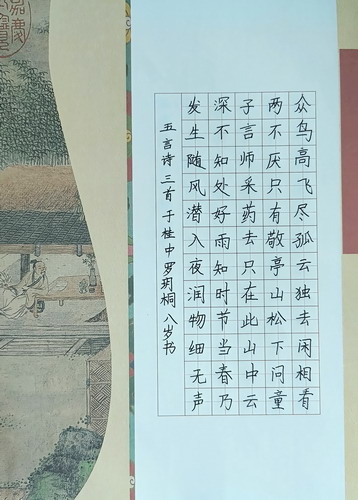 众鸟高飞尽孤云独去闲相看
两不厌只有敬亭山松下问童
子言师采药去只在此山中云
深不知处好雨知时节当春乃
发生随风潜入夜润物细无声
五言诗三首于桂中罗玥桐八岁书